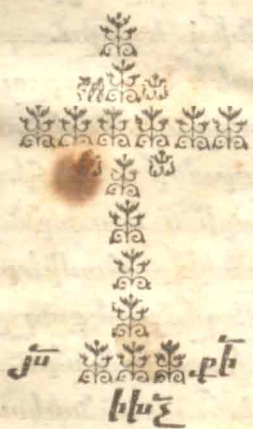 յս՟ քի՟
խաչ